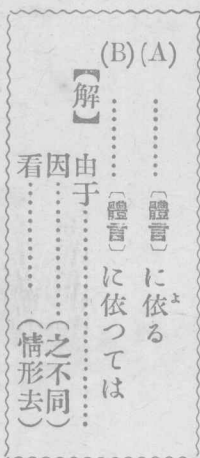 (A)…………〔體言〕に依る
よ
(B)…………〔體言〕に依つては
【解】由于…………………
因…………（之不同）
看…………（情形去）